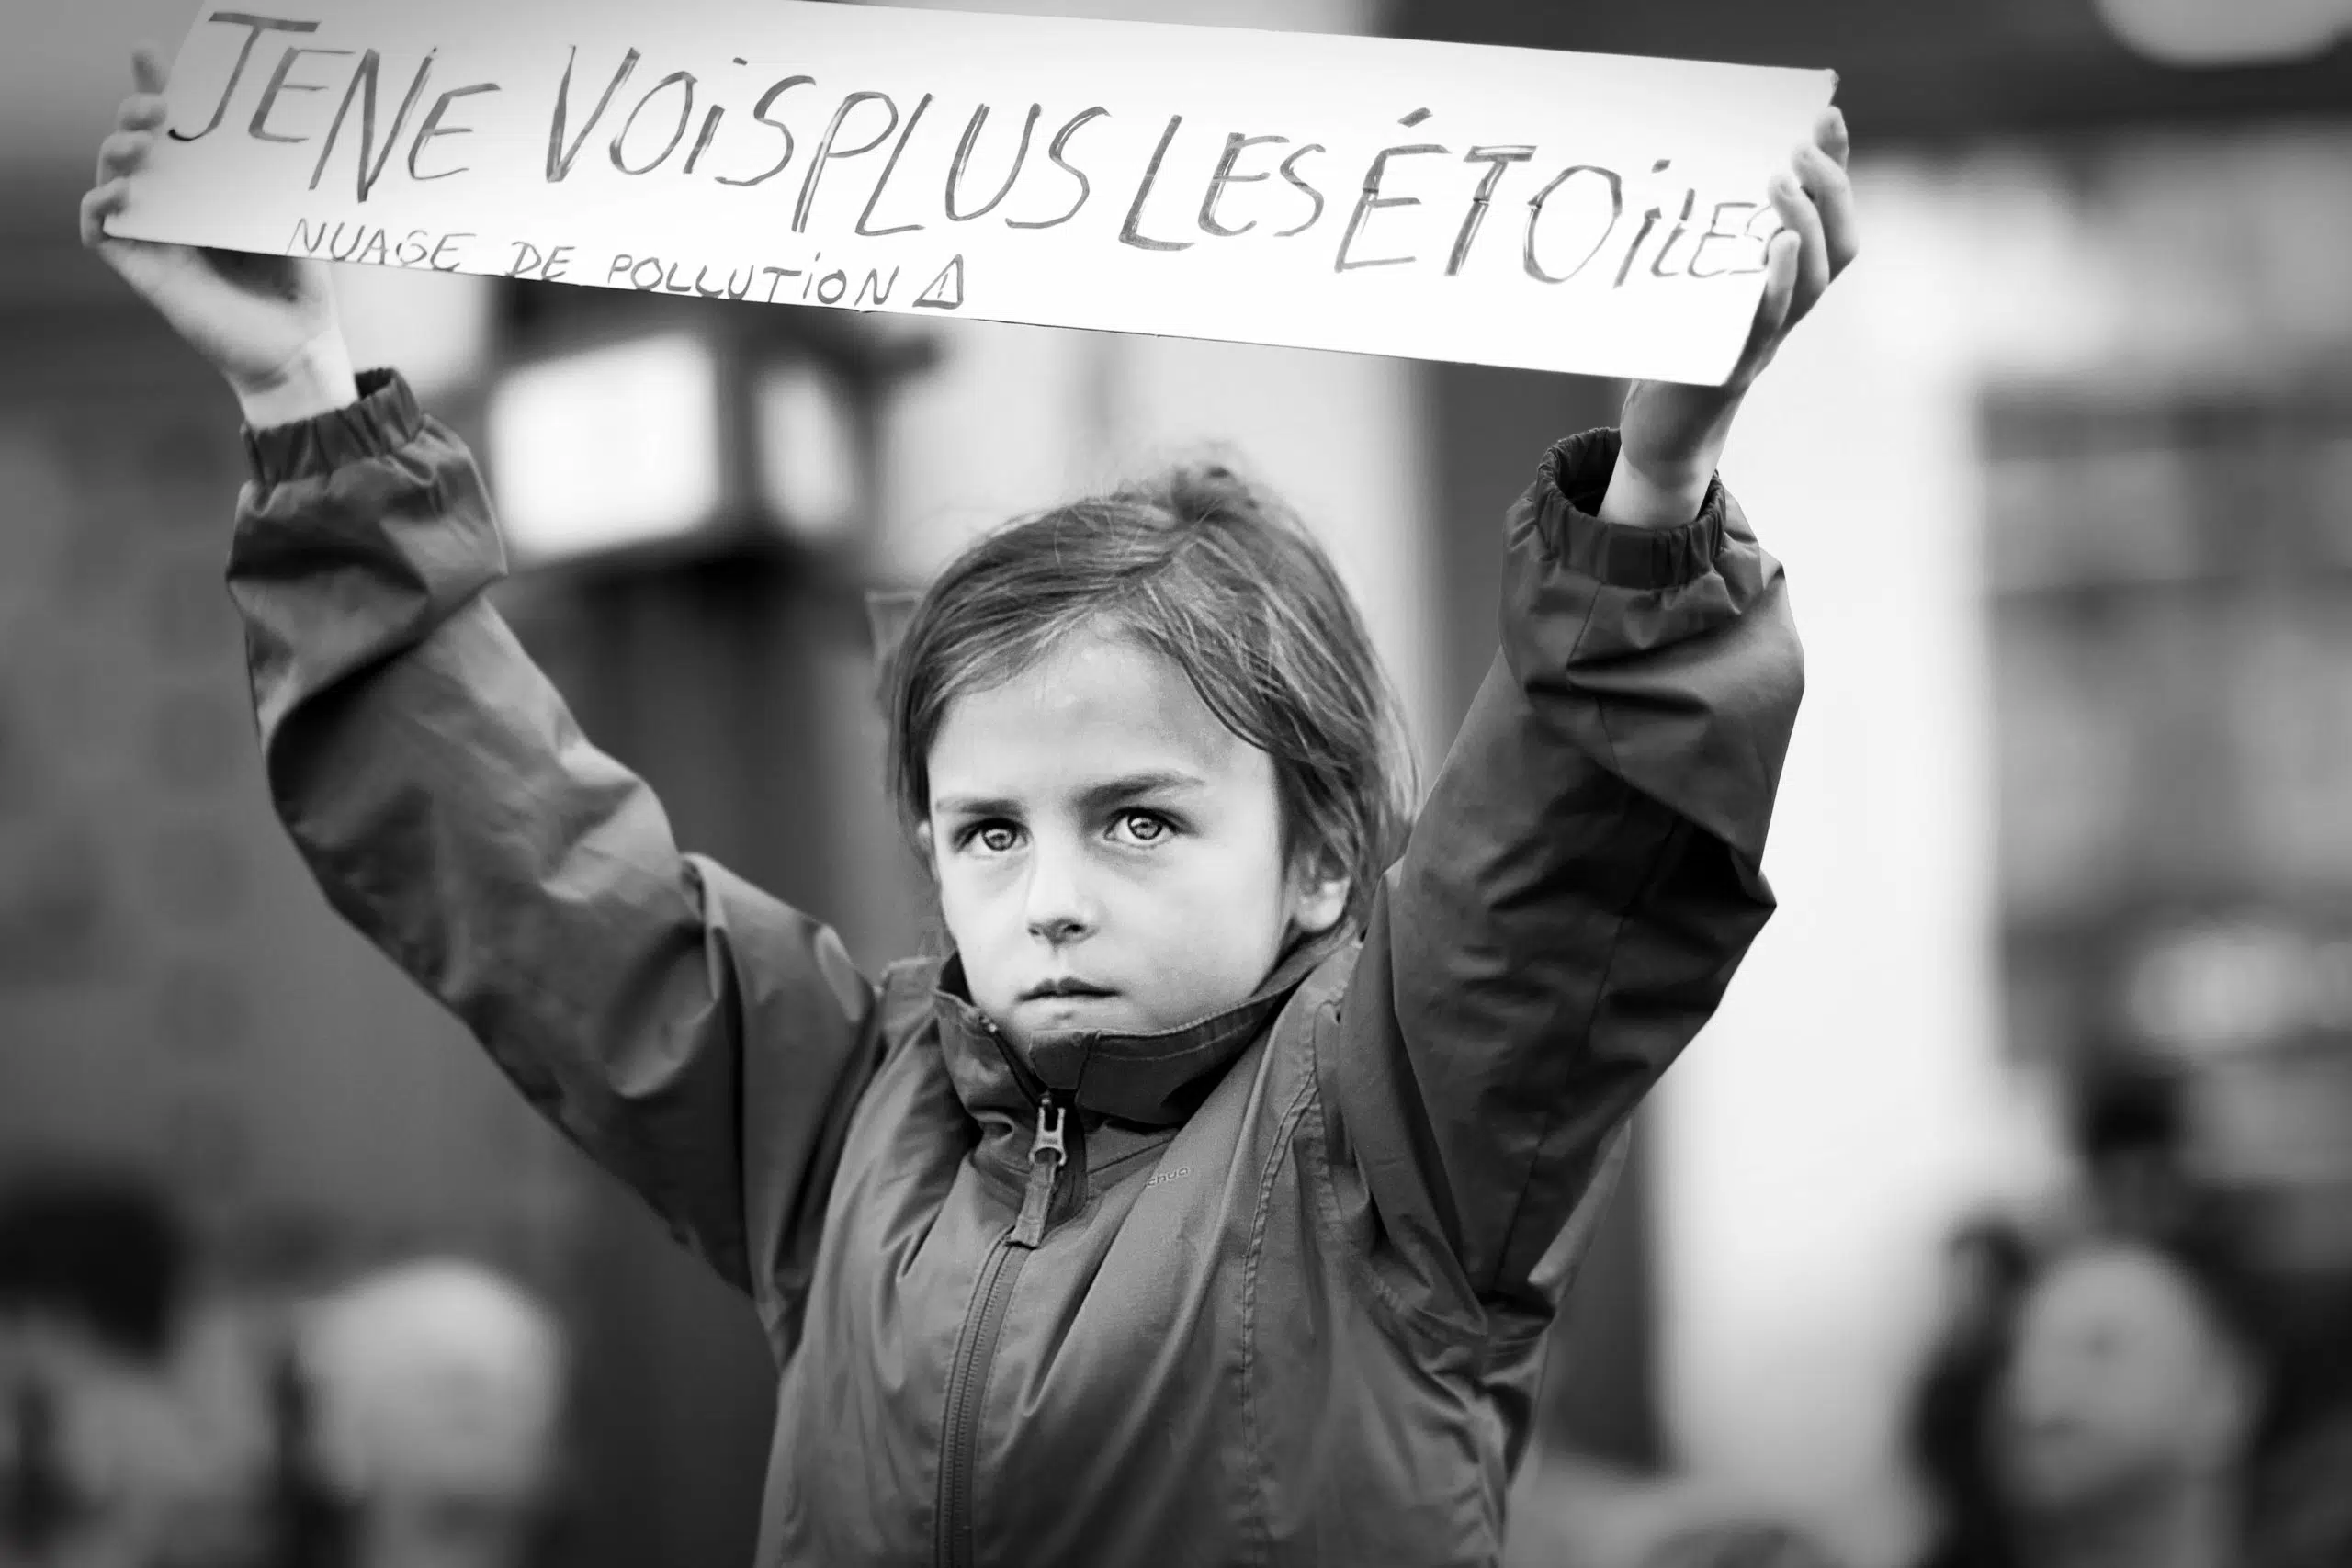 JE NE VOIS PLUS LES ÉTOILES
NUAGE DE POLLUTION ⚠